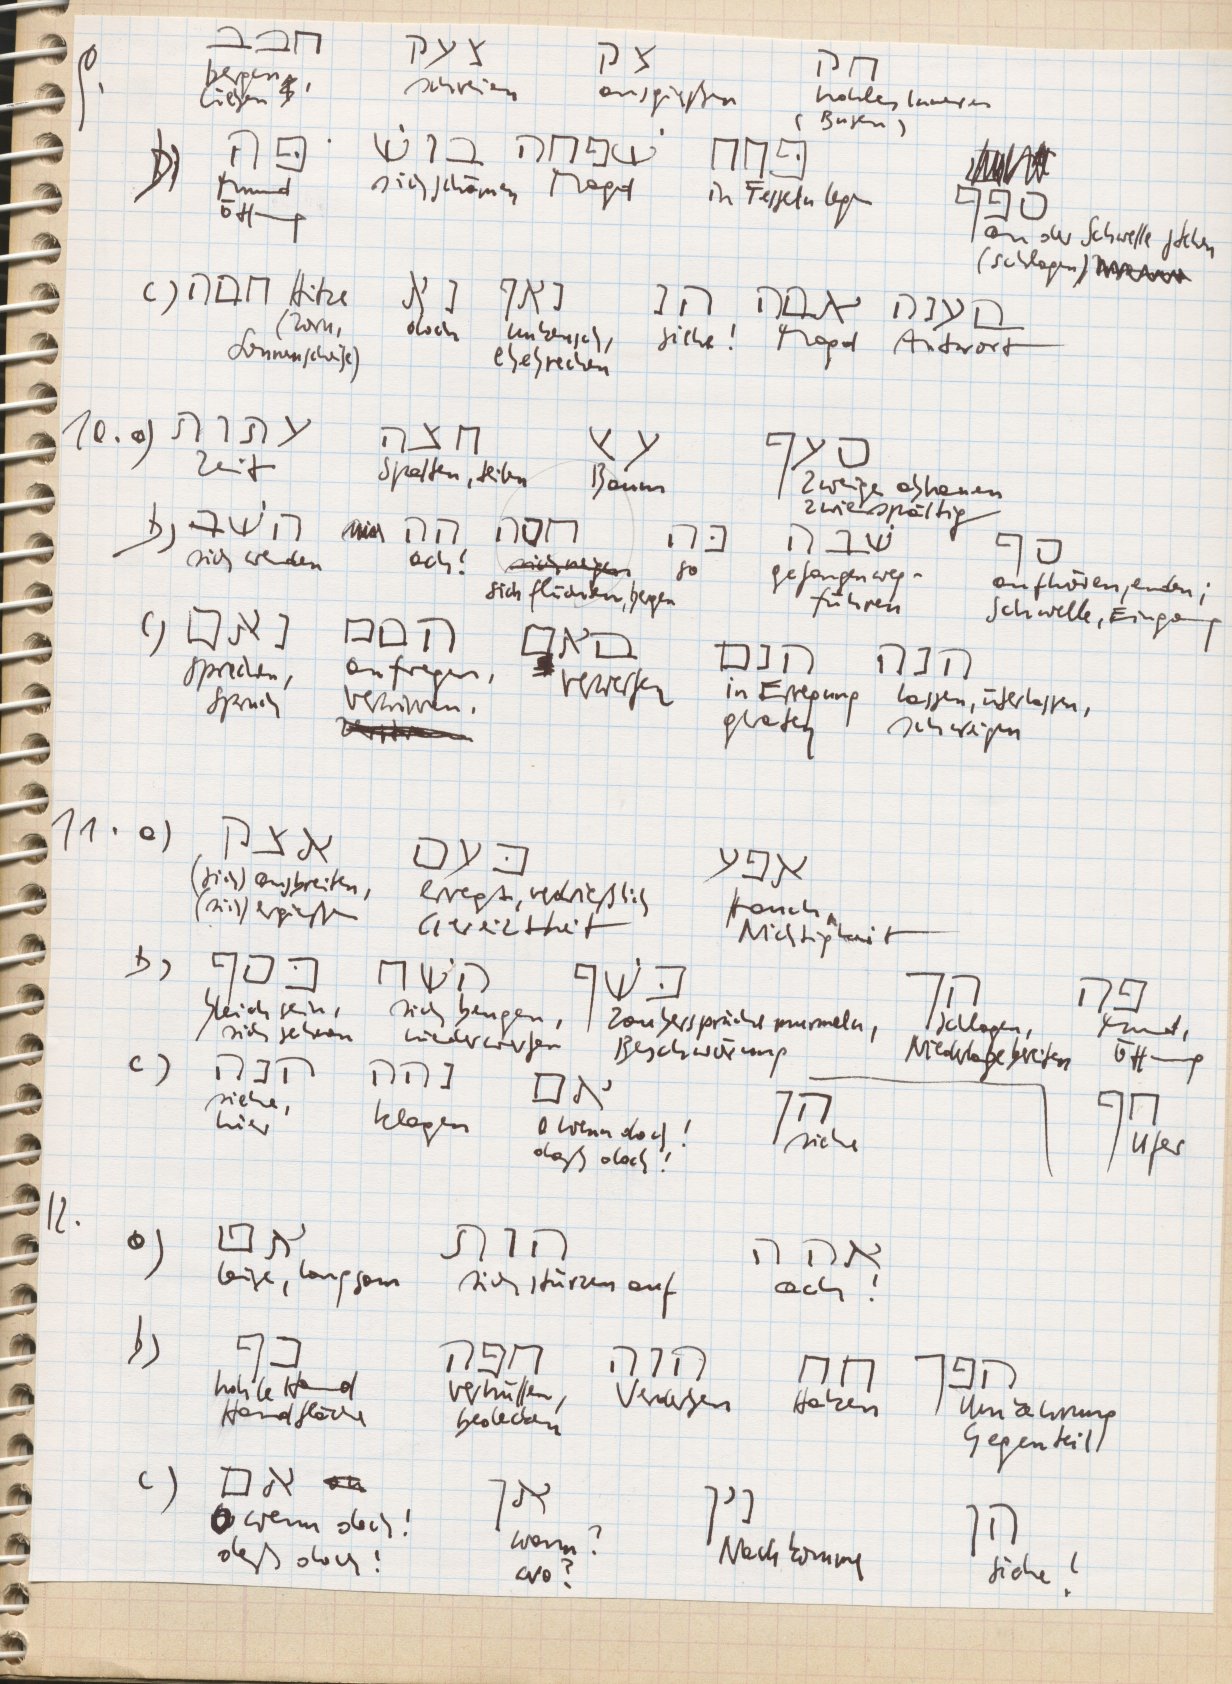 9. חבב צעק צק חק
bergen, schreien ausgießen hohles Inneres
lieben (Busen)
b) פּה בושׁ שׁפחה פּחח
Mund sich schämen Magd in Fesseln legen
Öffnung
ספף
an der Schwelle stehen
(schlagen)
c) חמה Hitze נא נאף הנ אמה מענה
(Zorn, doch unkeusch, siehe! Magd Antwort
Sonnenscheife) ehebrechen
10. a) עתות חצה עץ סעף
Zeit spalten, teilen Baum Zweige abhauen
zwiespältig
b) השׁב הה חסה כּה שׁבה סף
sich wenden ach! sich neigen so gefangen weg- aufhören, enden;
sich flüchten, bergen führen Schwelle, Eingang
c) נאם המם מאם הנם הנה
sprechen, aufregen, verwerfen in Erregung lassen, überlassen,
Spruch verwirren. geraten schweigen
11. a) אצק כּעם אפע
(sich) ausbreiten, erregt, verdrießlich Hauch,
(sich) ergießen Gereiztheit Nichtigkeit
b) כּסף השׁח כּשׁף הך פה
bleich sein, sich beugen, Zaubersprüche murmeln, schlagen, Mund,
sich sehnen niederwerfen Beschwörung Niederlage bereiten Öffnung
c) הנה נהה אם הן חף
siehe, klagen o wenn doch! siehe Ufer
hier daß doch!
12.
a) אט הות אהה
leise, langsam sich stürzen auf ach!
b) כף חפה הוה חח הפך
hohle Hand verhüllen, Verderben Haken Umkehrung
Handfläche bedecken Gegenteil
c) אם אן נין הן
O wenn doch! wann? Nachkomme siehe!
daß doch! wo?